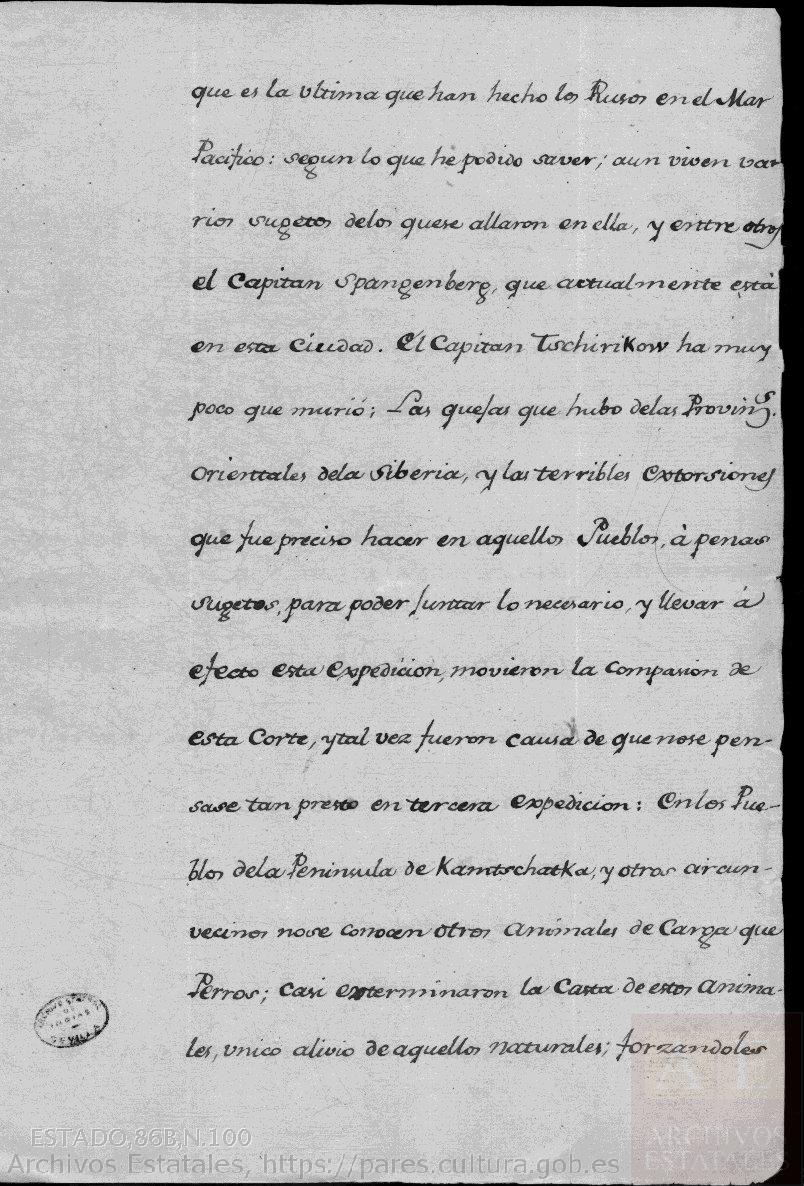 que es la vltima que han hecho los Rusos en el Mar
Pacifico: segun lo que he podido saver; aun viven var
rios sugetos delos quese allaron en ella, y entre otros
el Capitan Spangenberg, que actualmente està
en esta Ciudad. El Capitan Tschirikow ha muy
poco que murió; Las quejas que hubo delas Provins.
Orientales dela Siberia, y las terribles extorsiones
que fue preciso hacer en aquellos Pueblos, à penas
sugetos, para poder juntar lo necesario, y llevar à
efecto esta Expedicion, movieron la compasion de
esta Corte, ytal vez fueron causa de que nose pen-
sase tan presto en tercera Expedicion: En los Pue-
blos dela Peninsula de Kamtschatka, y otros circun-
vecinos nose conocen otros animales de Carga que
Perros; casi exterminaron la Casta de estos anima-
les, vnico alivio de aquellos naturales; forzandoles
SEVILLA
ESTADO,86B,N.100
Archivos Estatales, https://pares.cultura.gob.es
AE
ARCHIVOS
ESTATALES